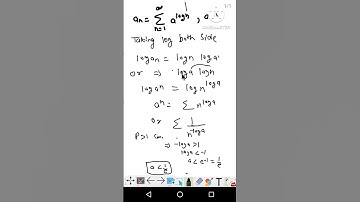 1/1
aₙ = ∞ Σ n=1 a^logn , a
Taking log both side
log aₙ = logn loga
or ⇒ loga logn
log aⁿ = log n^loga
aⁿ = Σ n^loga
or Σ 1/n^loga
P>1 con.
⇒ -loga >1
loga < -1
a < e⁻¹ = 1/e
a < 1/e